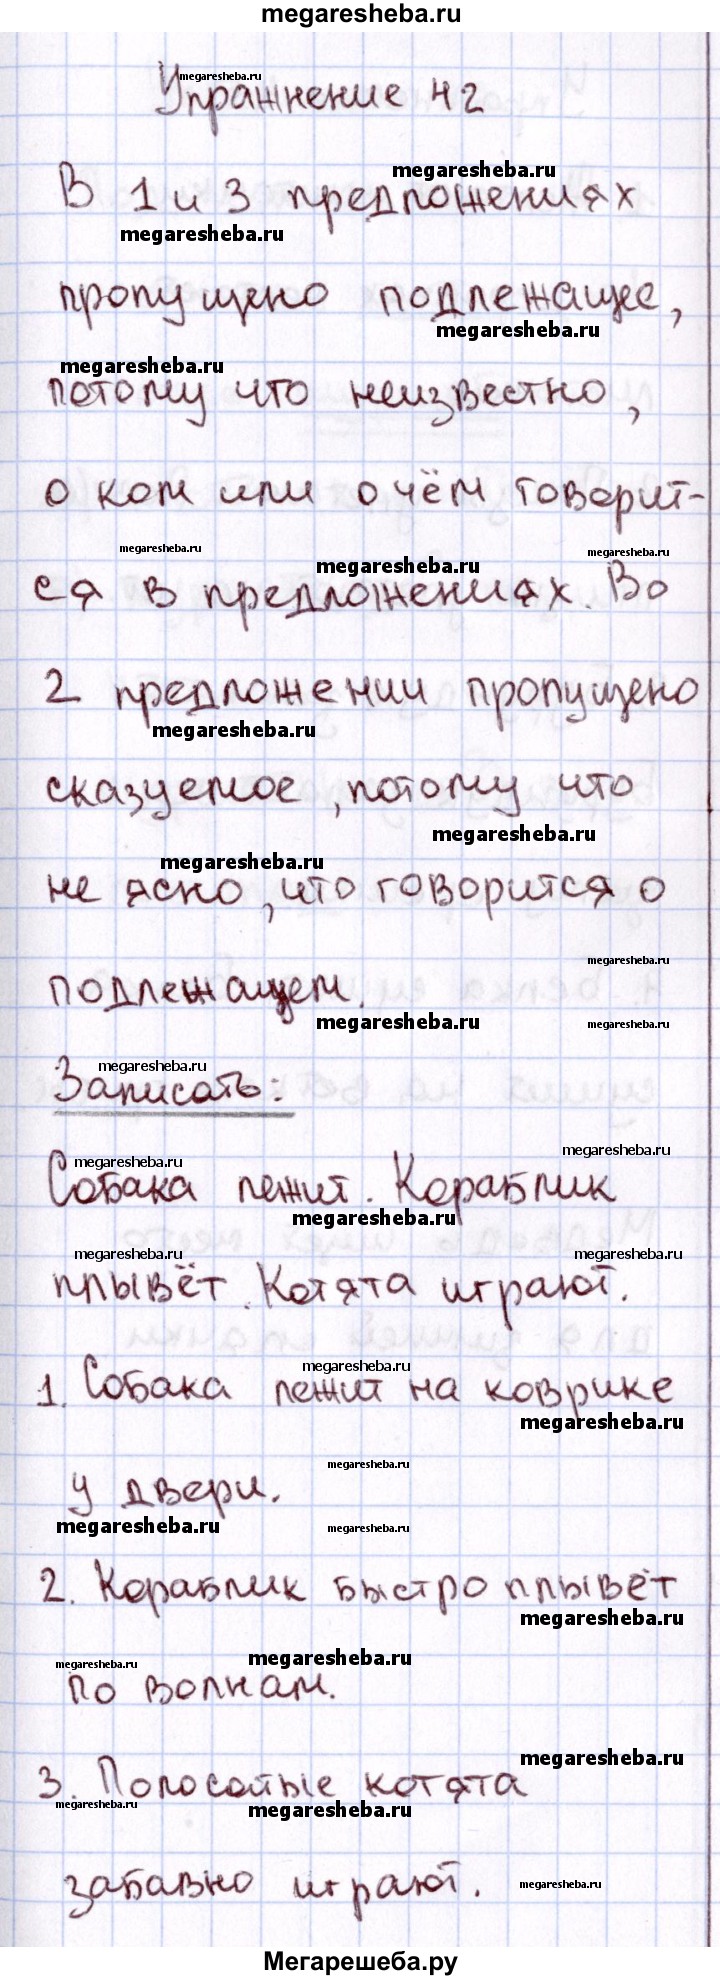 megaresheba.ru
Упражнение 42
В 1 и 3 предложениях
пропущено подлежащее,
потому что неизвестно,
о ком или о чём говорит-
ся в предложениях. Во
2 предложении пропущено
сказуемое, потому что
не ясно, что говорится о
подлежащем.
Записать:
Собака лежит. Кораблик
плывёт. Котята играют.
1. Собака лежит на коврике
у двери.
2. Кораблик быстро плывёт
по волнам.
3. Полосатые котята
забавно играют.
Мегарешеба.ру